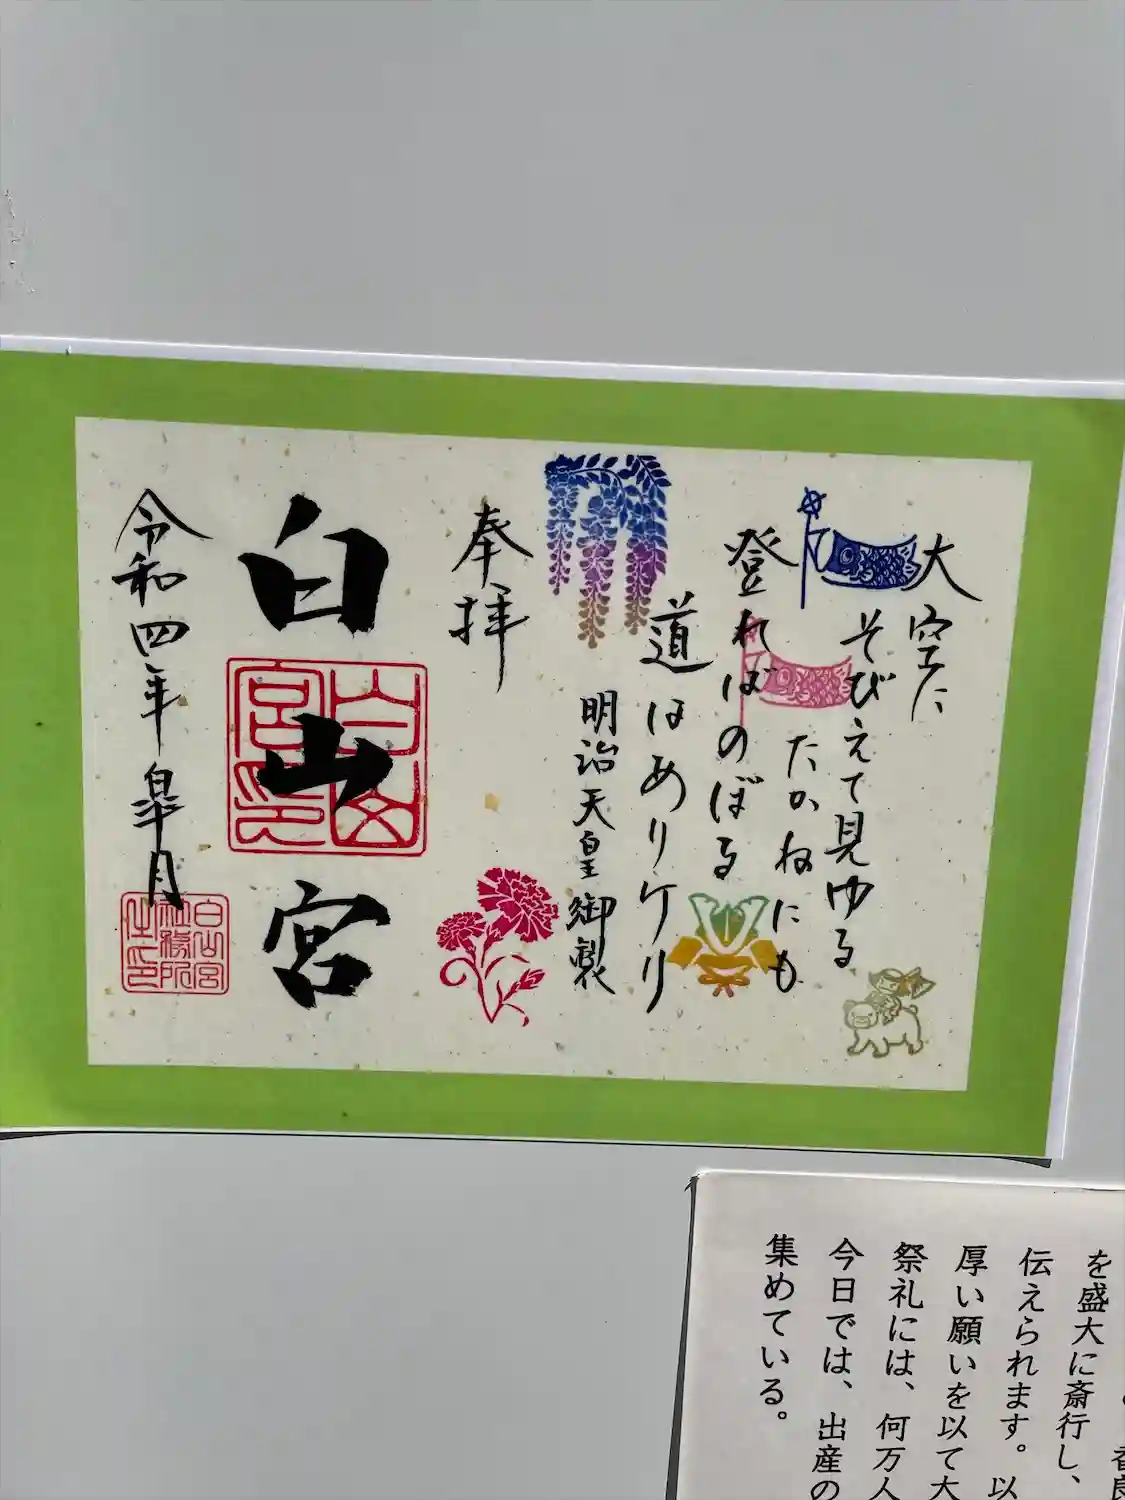 大空に
そびえて見ゆる
たかねにも
登ればのぼる
道はありけり
明治天皇御製
奉拝
白山宮
白山宮印
令和四年皐月
白山宮
社務所
之印
を盛大に斎行し、
伝えられます。以
厚い願いを以て大
祭礼には、何万人
今日では、出産の
集めている。